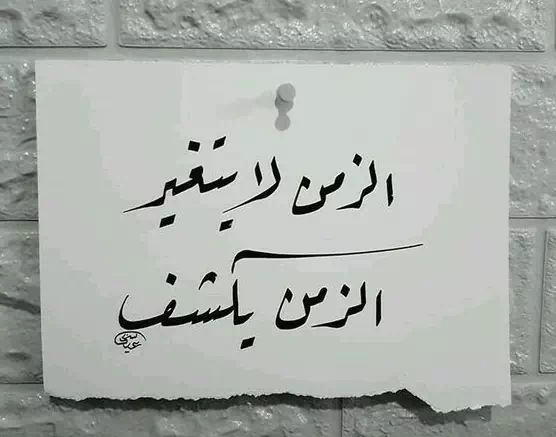 الزمن لا يتغير
الزمن يكشف